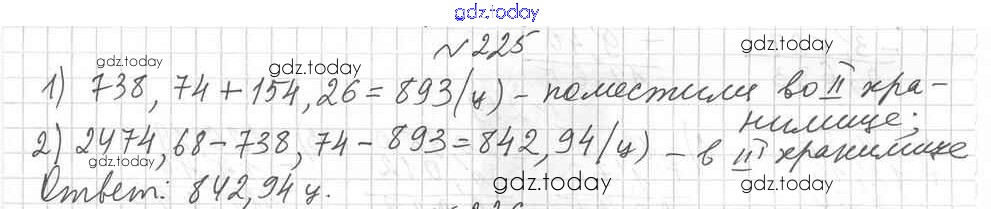 gdz.today
№225
gdz.today gdz.today gdz.today
1) 738,74 + 154,26 = 893 (ц) – поместили во II хра-
нилище;
2) 2474,68 – 738,74 – 893 = 842,94 (ц) – в III хранилище
gdz.today
Ответ: 842,94 ц.
gdz.today gdz.today